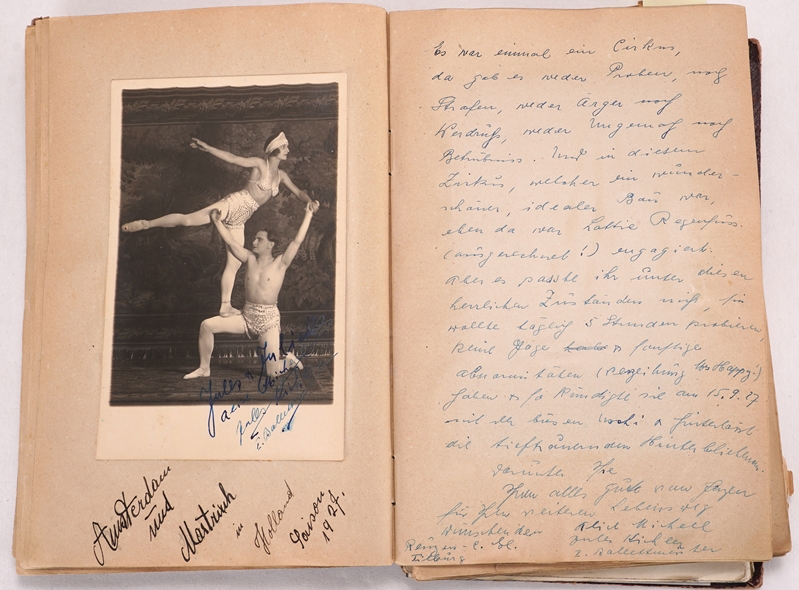 Jules
Amsterdam
und
Mastricih
in
Holland
Saison
1927.
Es war einmal ein Cirkus,
da gab es weder Proben, noch
Strafen, weder Ärger noch
Verdruß, weder Ungemach noch
Betrübniss. Und in diesem
Zirkus, welcher ein wunder-
schöner, idealer Bau war,
eben da war Lottie Regenfuss.
(ausgerechnet!) engagiert.
Aber es passte ihr unter diesen
herrlichen Zuständen nicht, sie
wollte täglich 5 Stunden probieren,
keine Gage & sonstige
abnormitäten (Verzeihung
haben & so kündigte sie am 15.9.27
mit der bösen & hinterlässt
die tieftrauernden Hinterbliebenen.
Darunter Ihr
Ihnen alles gute vom Herzen
für Ihren weiteren Lebensweg
wünschenden Michell
Tilburg z. Balletmeister